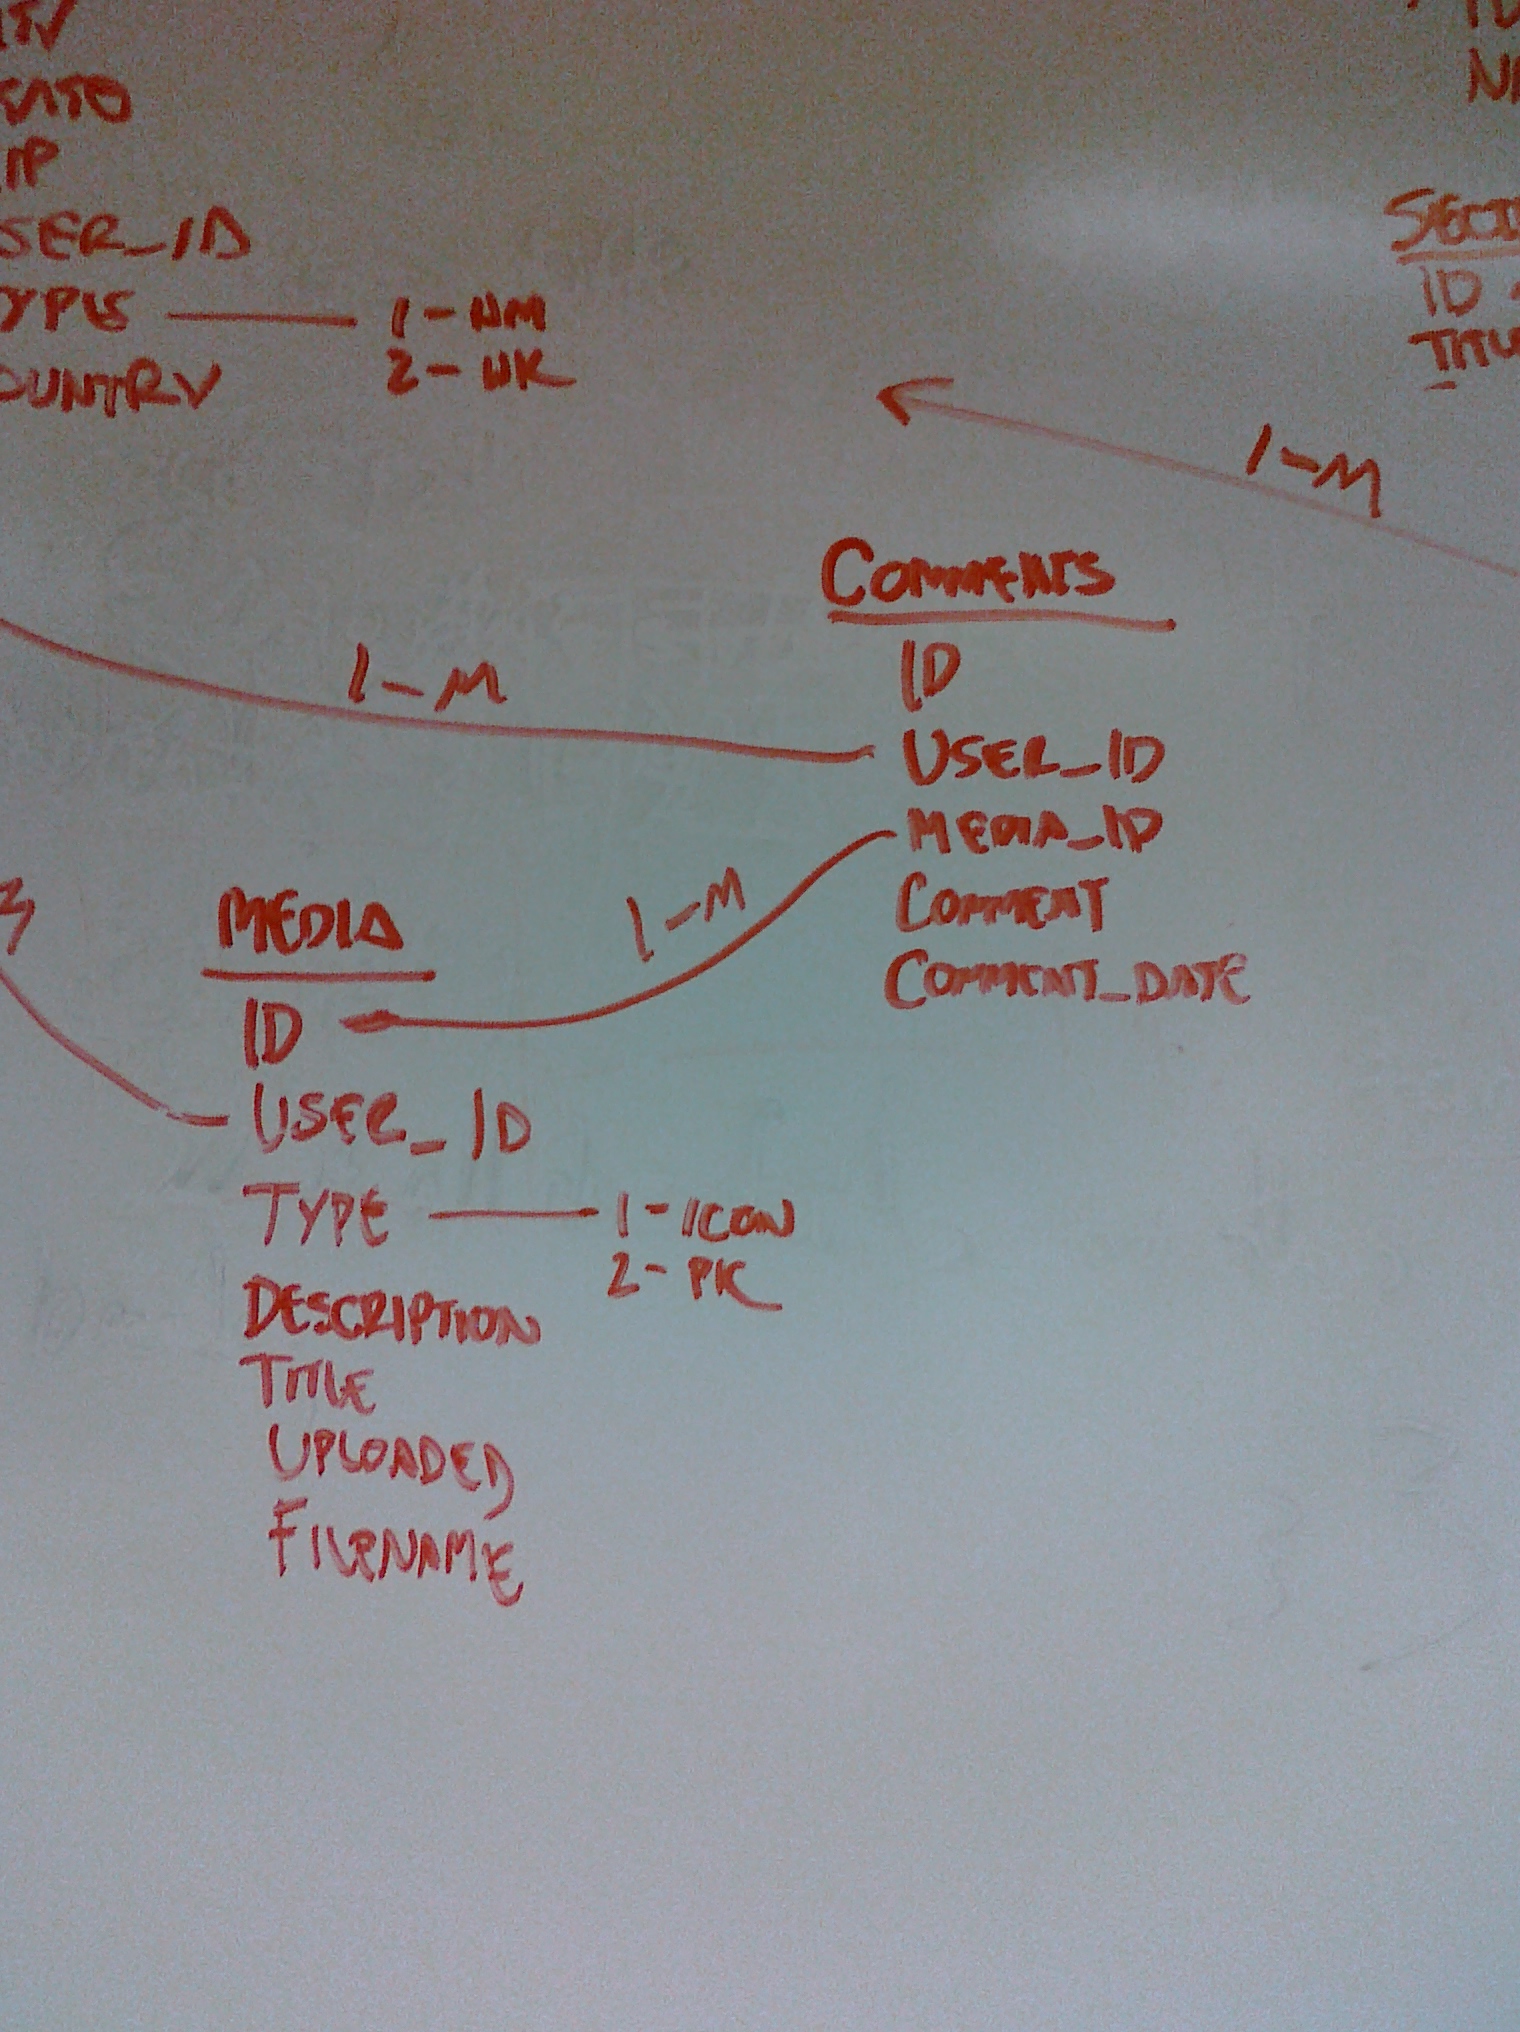 USER_ID
TYPE 1-HM
2-WK
COUNTRY
ID
TITLE
1-M
COMMENTS
ID
USER_ID
MEDIA_ID
COMMENT
COMMENT_DATE
1-M
1-M
MEDIA
ID
USER_ID
TYPE 1-ICON
2-PIC
DESCRIPTION
TITLE
UPLOADED
FILENAME